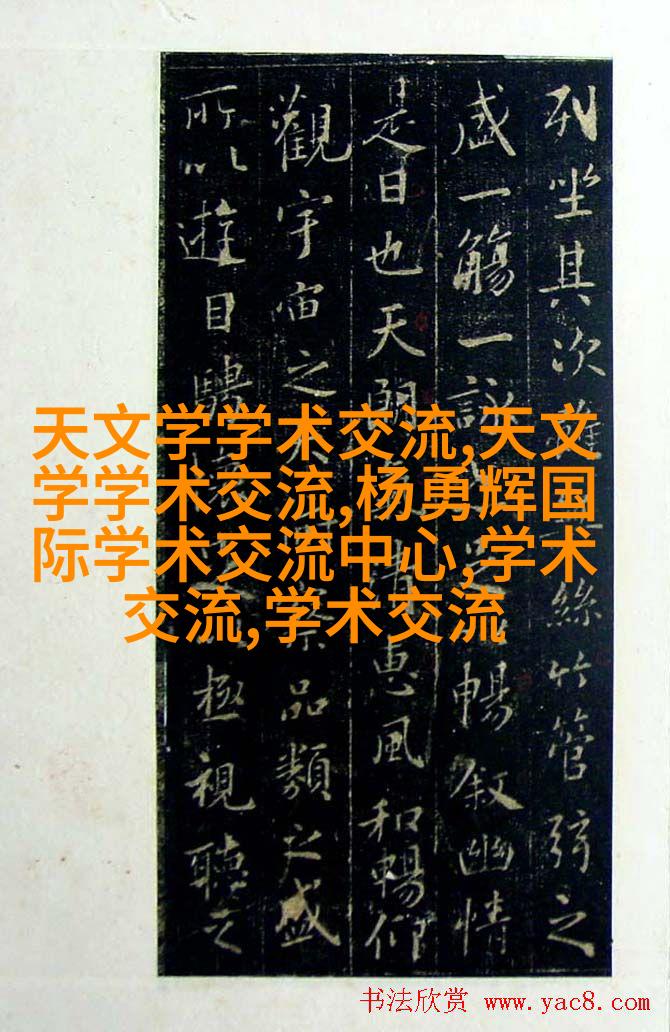 天文学学术交流,天文
学学术交流,杨勇辉国
际学术交流中心,学术
交流,学术交流
列坐其次絲竹管弦之
盛一觴一詠暢叙幽情
是日也天朗清惠風和暢仰
觀宇宙之察品類之盛
所以遊目騁極視聽之
书法欣赏 www.yac8.com